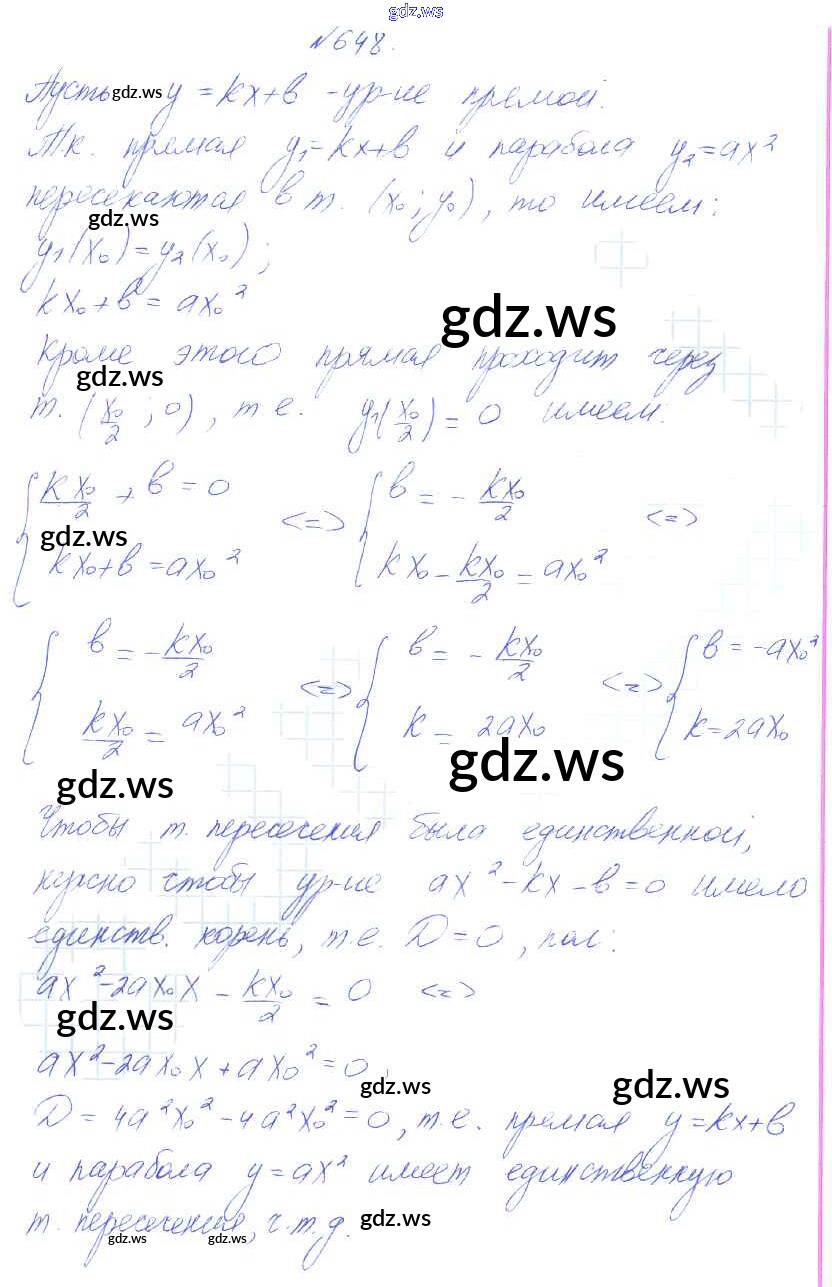 gdz.ws
№648.
Пусть gdz.ws y = kx+b -ур-ие прямой.
Т.к. прямая y₁=kx+b и парабола y₂=ax²
пересекаются в т. (x₀; y₀), то имеем:
gdz.ws
y₁(x₀)=y₂(x₀);
kx₀+b = ax₀²
gdz.ws
Кроме этого прямая проходит через
gdz.ws
т. (x₀/2; 0), т.е. y₁(x₀/2) = 0 имеем:
{ kx₀/2 + b = 0 <=> { b = - kx₀/2 <=>
gdz.ws
kx₀+b = ax₀² kx₀ - kx₀/2 = ax₀²
{ b = - kx₀/2 <=> { b = - kx₀/2 <=> { b = -ax₀²
kx₀/2 = ax₀² k = 2ax₀ k=2ax₀
gdz.ws gdz.ws
Чтобы т. пересечения была единственной,
нужно чтобы ур-ие ax²-kx-b=0 имело
единств. корень, т.е. D=0, пол:
ax²-2ax₀x - kx₀/2 = 0 <=>
gdz.ws
ax²-2ax₀x+ax₀²=0,
gdz.ws gdz.ws
D = 4a²x₀²-4a²x₀²=0, т.е. прямая y=kx+b
и парабола y=ax² имеет единственную
т. пересечения, ч.т.д. gdz.ws
gdz.ws gdz.ws